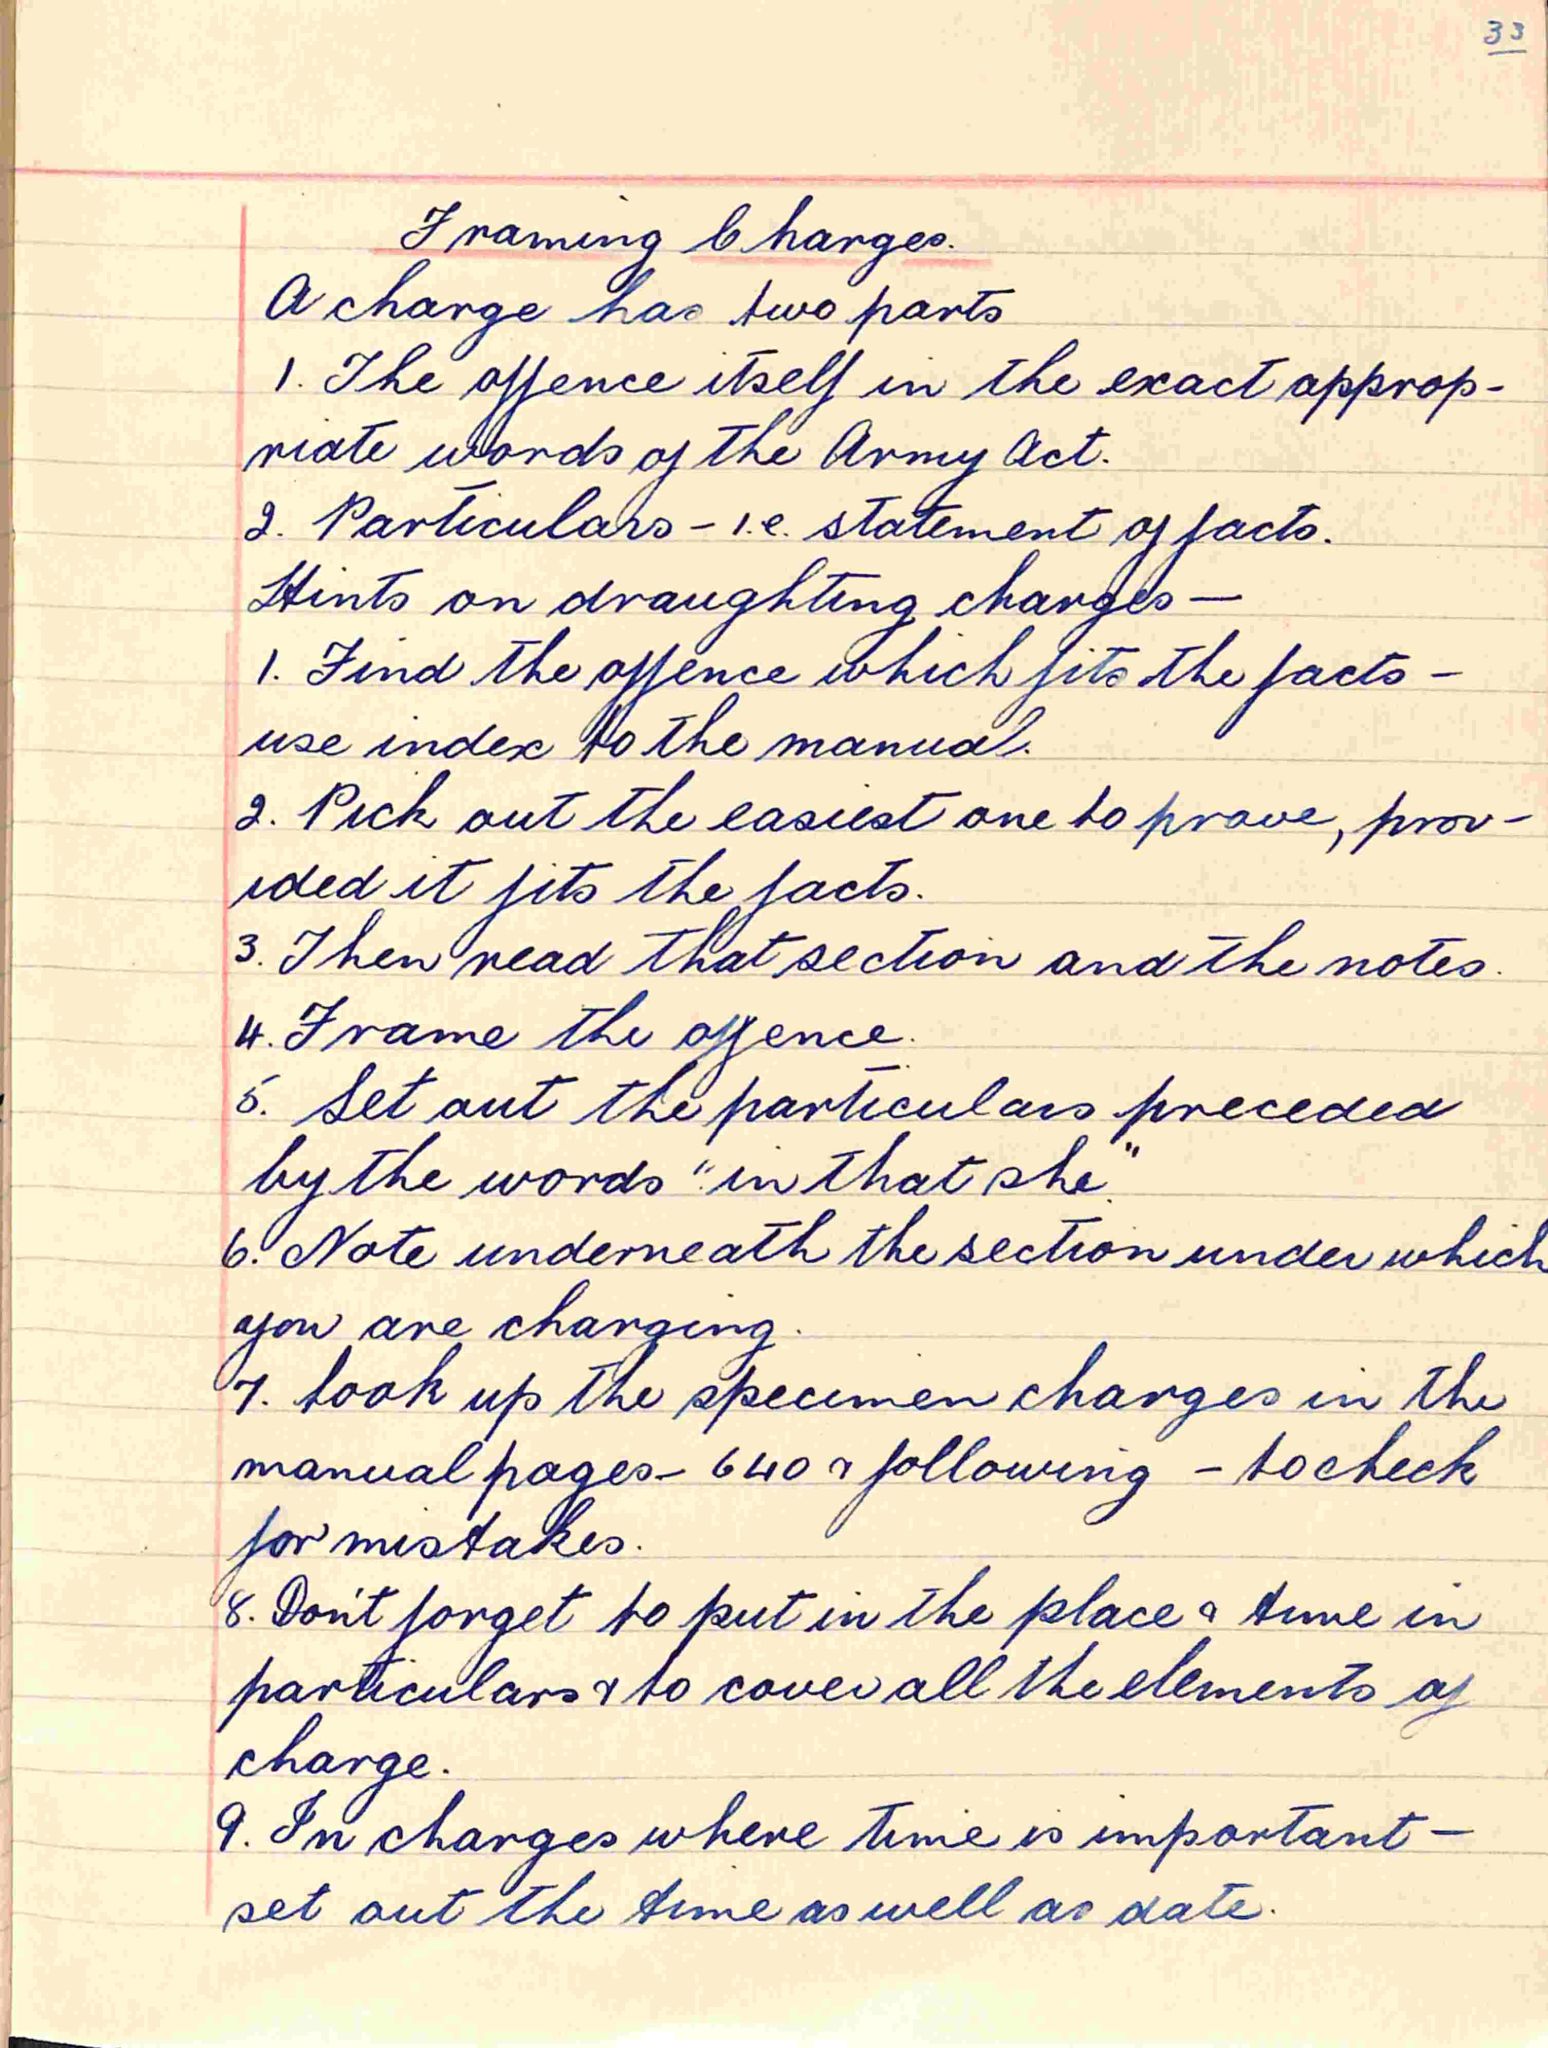 33
Framing Charges.
A charge has two parts
1. The offence itself in the exact approp-
riate words of the Army Act.
2. Particulars – i.e. statement of facts.
Hints on draughting charges —
1. Find the offence which fits the facts –
use index to the manual.
2. Pick out the easiest one to prove, prov-
ided it fits the facts.
3. Then read that section and the notes.
4. Frame the offence.
5. Set out the particulars preceded
by the words "in that she".
6. Note underneath the section under which
you are charging.
7. Look up the specimen charges in the
manual pages – 640 & following – to check
for mistakes.
8. Don't forget to put in the place & time in
particulars & to cover all the elements of
charge.
9. In charges where time is important –
set out the time as well as date.